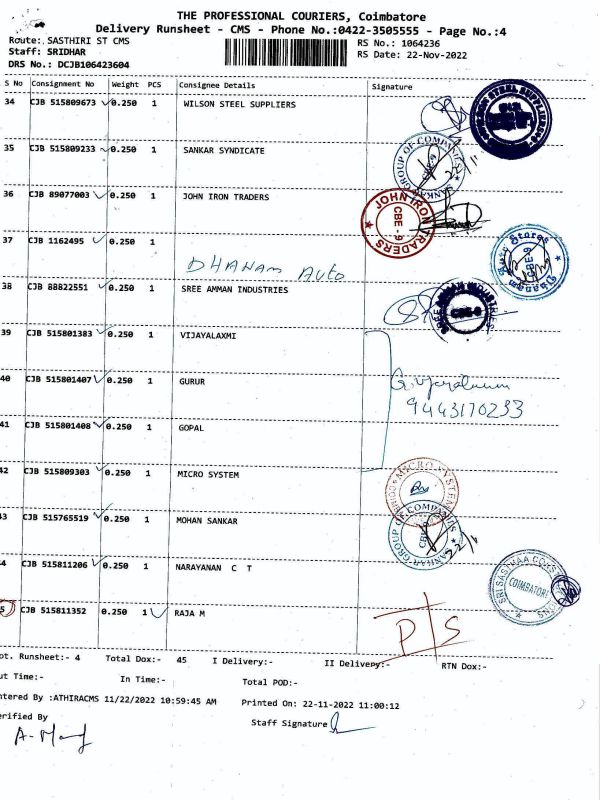 THE PROFESSIONAL COURIERS, Coimbatore
Delivery Runsheet - CMS - Phone No.:0422-3505555 - Page No.:4
Route: SASTHIRI ST CMS RS No.: 1064236
Staff: SRIDHAR RS Date: 22-Nov-2022
DRS No.: DCJB106423604
S No Consignment No Weight PCS Consignee Details Signature
34 CJB 515809673 0.250 1 WILSON STEEL SUPPLIERS
35 CJB 515809233 0.250 1 SANKAR SYNDICATE
SANKAR GROUP OF COMPANIES CBE-9
36 CJB 89077003 0.250 1 JOHN IRON TRADERS
JOHN IRON TRADERS CBE - 9
37 CJB 1162495 0.250 1
DHANAM AUTO
Dhanam Auto Stores CBE-9
38 CJB 88822551 0.250 1 SREE AMMAN INDUSTRIES
SREE AMMAN INDUSTRIES CBE-9
39 CJB 515801383 0.250 1 VIJAYALAXMI
40 CJB 515801407 0.250 1 GURUR
9443170233
41 CJB 515801408 0.250 1 GOPAL
42 CJB 515809303 0.250 1 MICRO SYSTEM
MICRO SYSTEM
43 CJB 515765519 0.250 1 MOHAN SANKAR
SANKAR GROUP OF COMPANIES
44 CJB 515811206 0.250 1 NARAYANAN C T
COIMBATORE
5 CJB 515811352 0.250 1 RAJA M
PTS
ot. Runsheet:- 4 Total Dox:- 45 I Delivery:- II Delivery:- RTN Dox:-
ut Time:- In Time:- Total POD:-
ntered By :ATHIRACMS 11/22/2022 10:59:45 AM Printed On: 22-11-2022 11:00:12
erified By Staff Signature